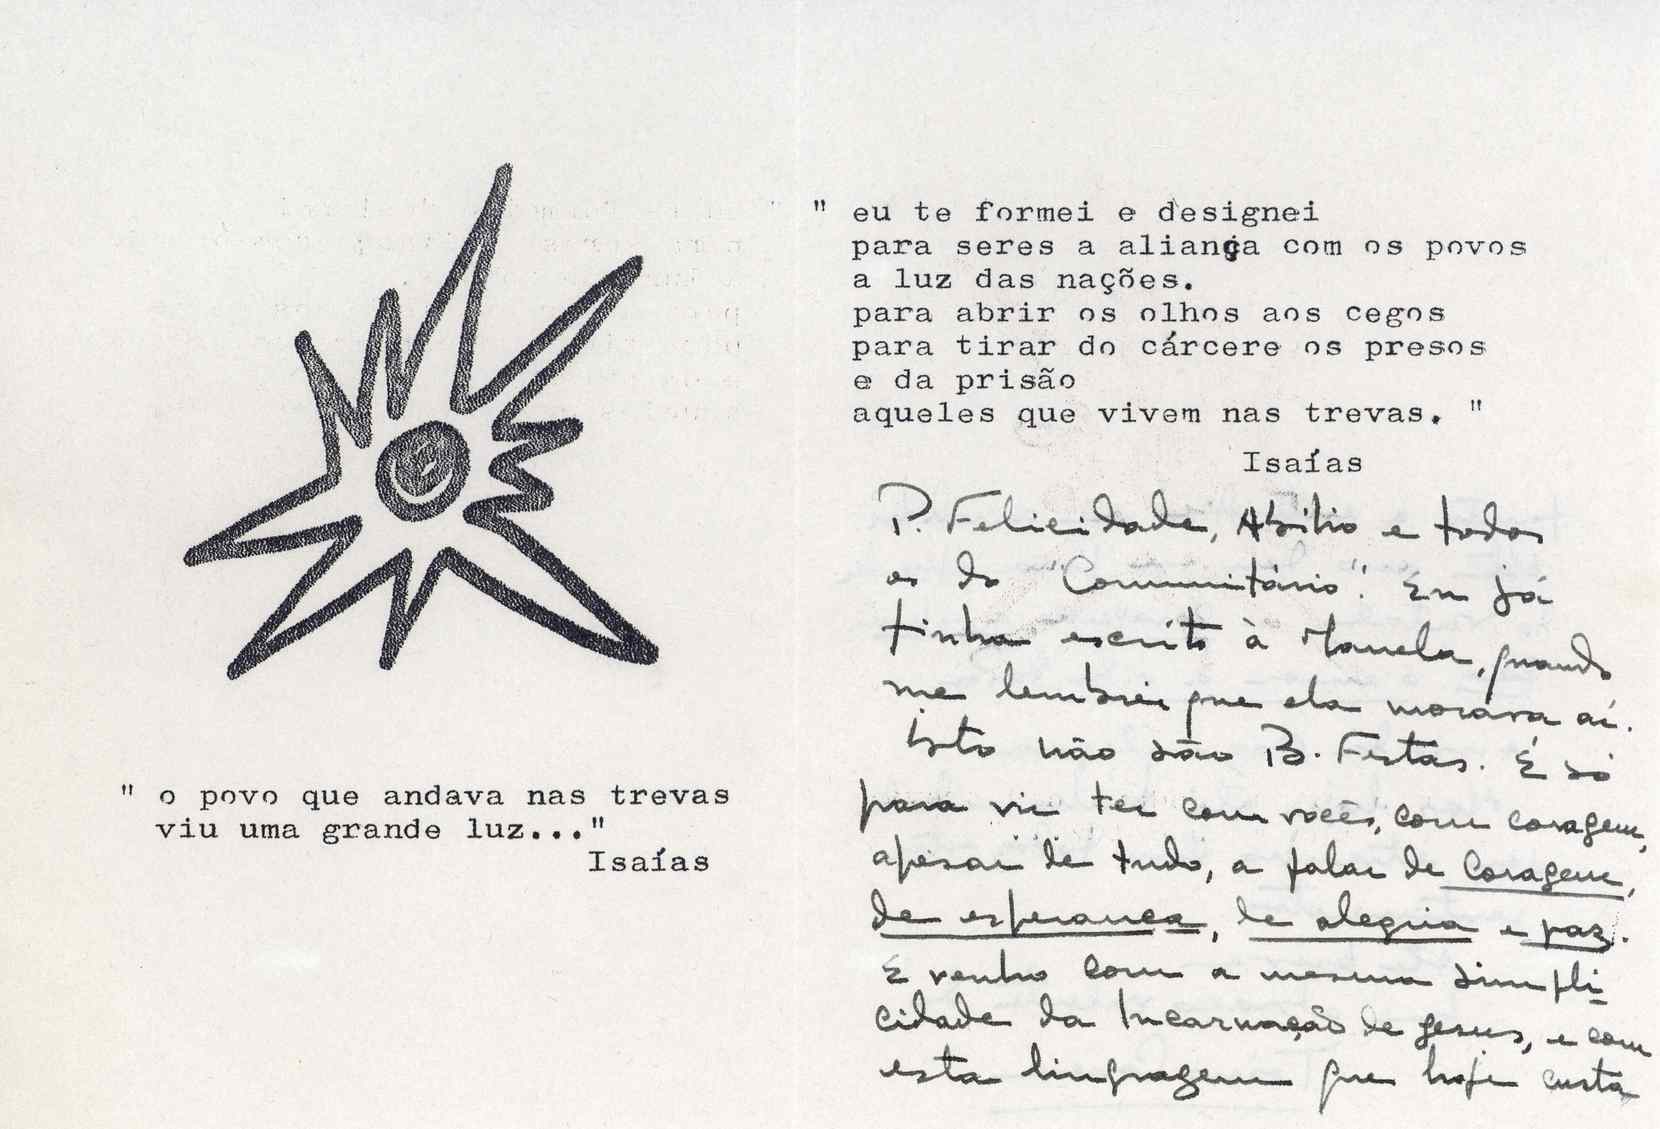 " o povo que andava nas trevas
viu uma grande luz..."
Isaías
" eu te formei e designei
para seres a aliança com os povos
a luz das nações.
para abrir os olhos aos cegos
para tirar do cárcere os presos
e da prisão
aqueles que vivem nas trevas. "
Isaías
P. Felicidade, Abílio e todos
os do "Comunitário". Eu já
tinha escrito à Manuela, quando
me lembrei que ela morava aí.
Isto não são B. Festas. É só
para vir ter com vocês, com coragem,
apesar de tudo, a falar de coragem,
de esperança, de alegria e paz.
E venho com a mesma simpli-
cidade da Incarnação de Jesus, e com
esta linguagem que hoje custa